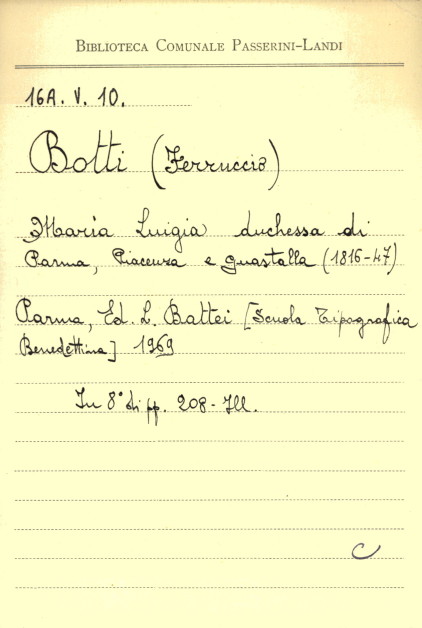 BIBLIOTECA COMUNALE PASSERINI-LANDI
16A. V. 10.
Botti (Ferruccio)
Maria Luigia duchessa di
Parma, Piacenza e Guastalla (1816-47)
Parma, Ed. L. Battei [Scuola Tipografica
Benedettina] 1969
In 8° di pp. 208 - Ill.
C